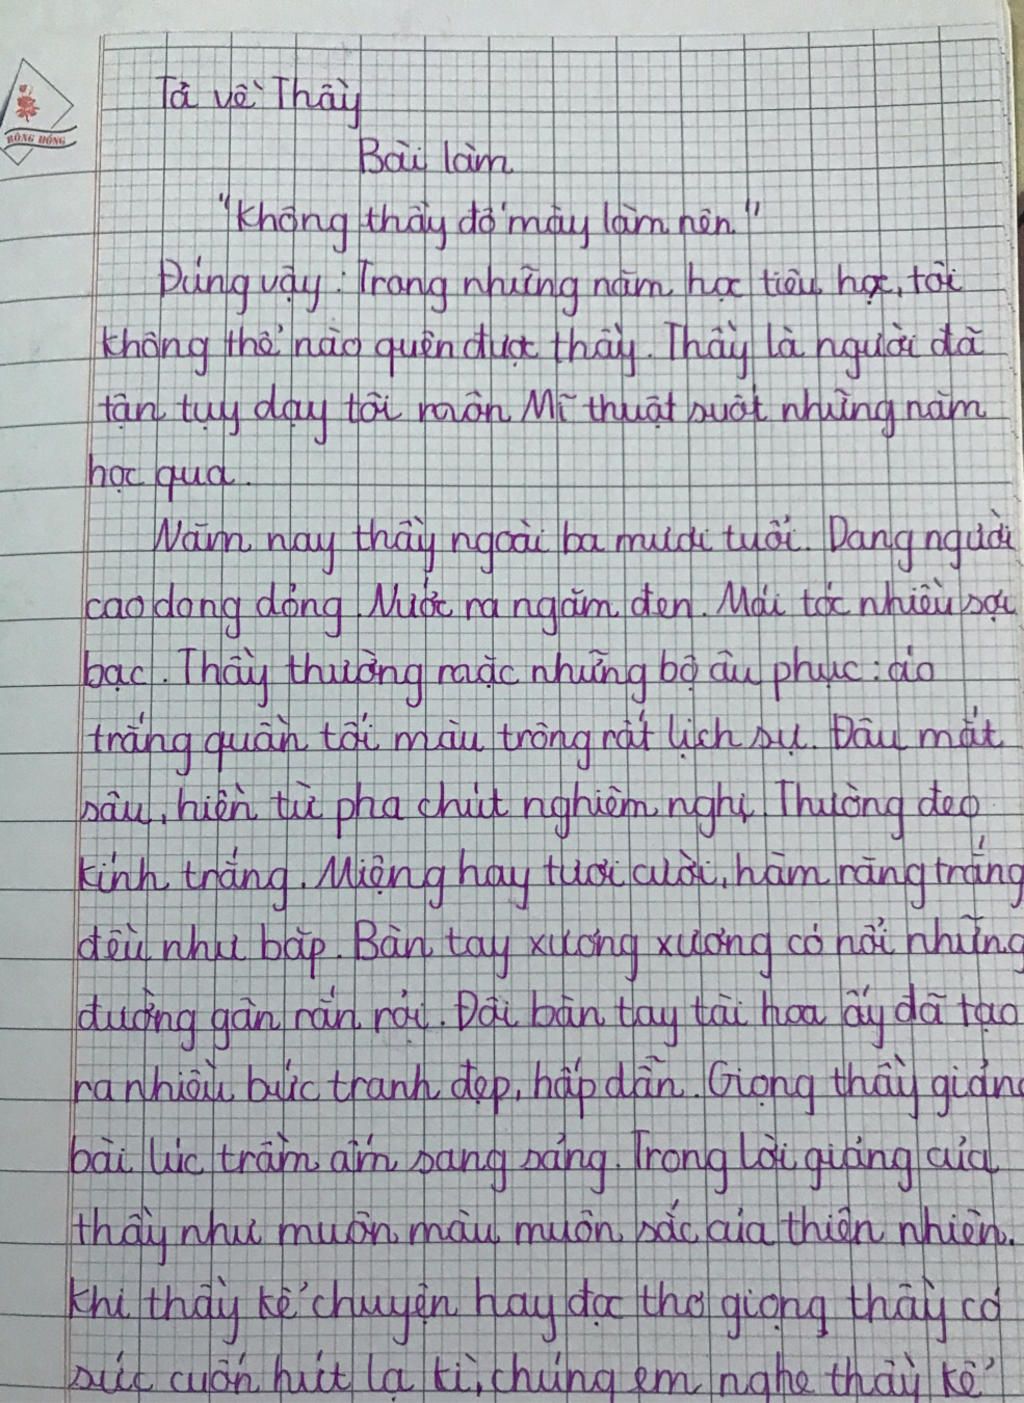 Tả về Thầy
RỒNG HỒNG
Bài làm
"Không thầy đố mày làm nên"
Đúng vậy: Trong những năm học tiểu học, tôi
không thể nào quên được thầy. Thầy là người đã
tận tụy dạy tôi môn Mĩ thuật suốt những năm
học qua.
Năm nay thầy ngoài ba mươi tuổi. Dang người
cao dong dỏng. Nước ra ngăm đen. Mái tóc nhiều sợi
bạc. Thầy thường mặc những bộ âu phục: áo
trắng quần tối màu trông rất lịch sự. Đâu mắt
sâu, hiền từ pha chút nghiêm nghị. Thường đeo
kính trắng. Miệng hay tươi cười, hàm răng trắng
đều như bắp. Bàn tay xương xương có nổi những
đường gân rắn rỏi. Đôi bàn tay tài hoa ấy đã tạo
ra nhiều bức tranh đẹp, hấp dẫn. Giọng thầy giảng
bài lúc trầm ấm sang sảng. Trong lời giảng của
thầy như muôn màu muôn sắc của thiên nhiên.
Khi thầy kể chuyện hay đọc thơ giọng thầy có
sức cuốn hút lạ kì, chúng em nghe thầy kể